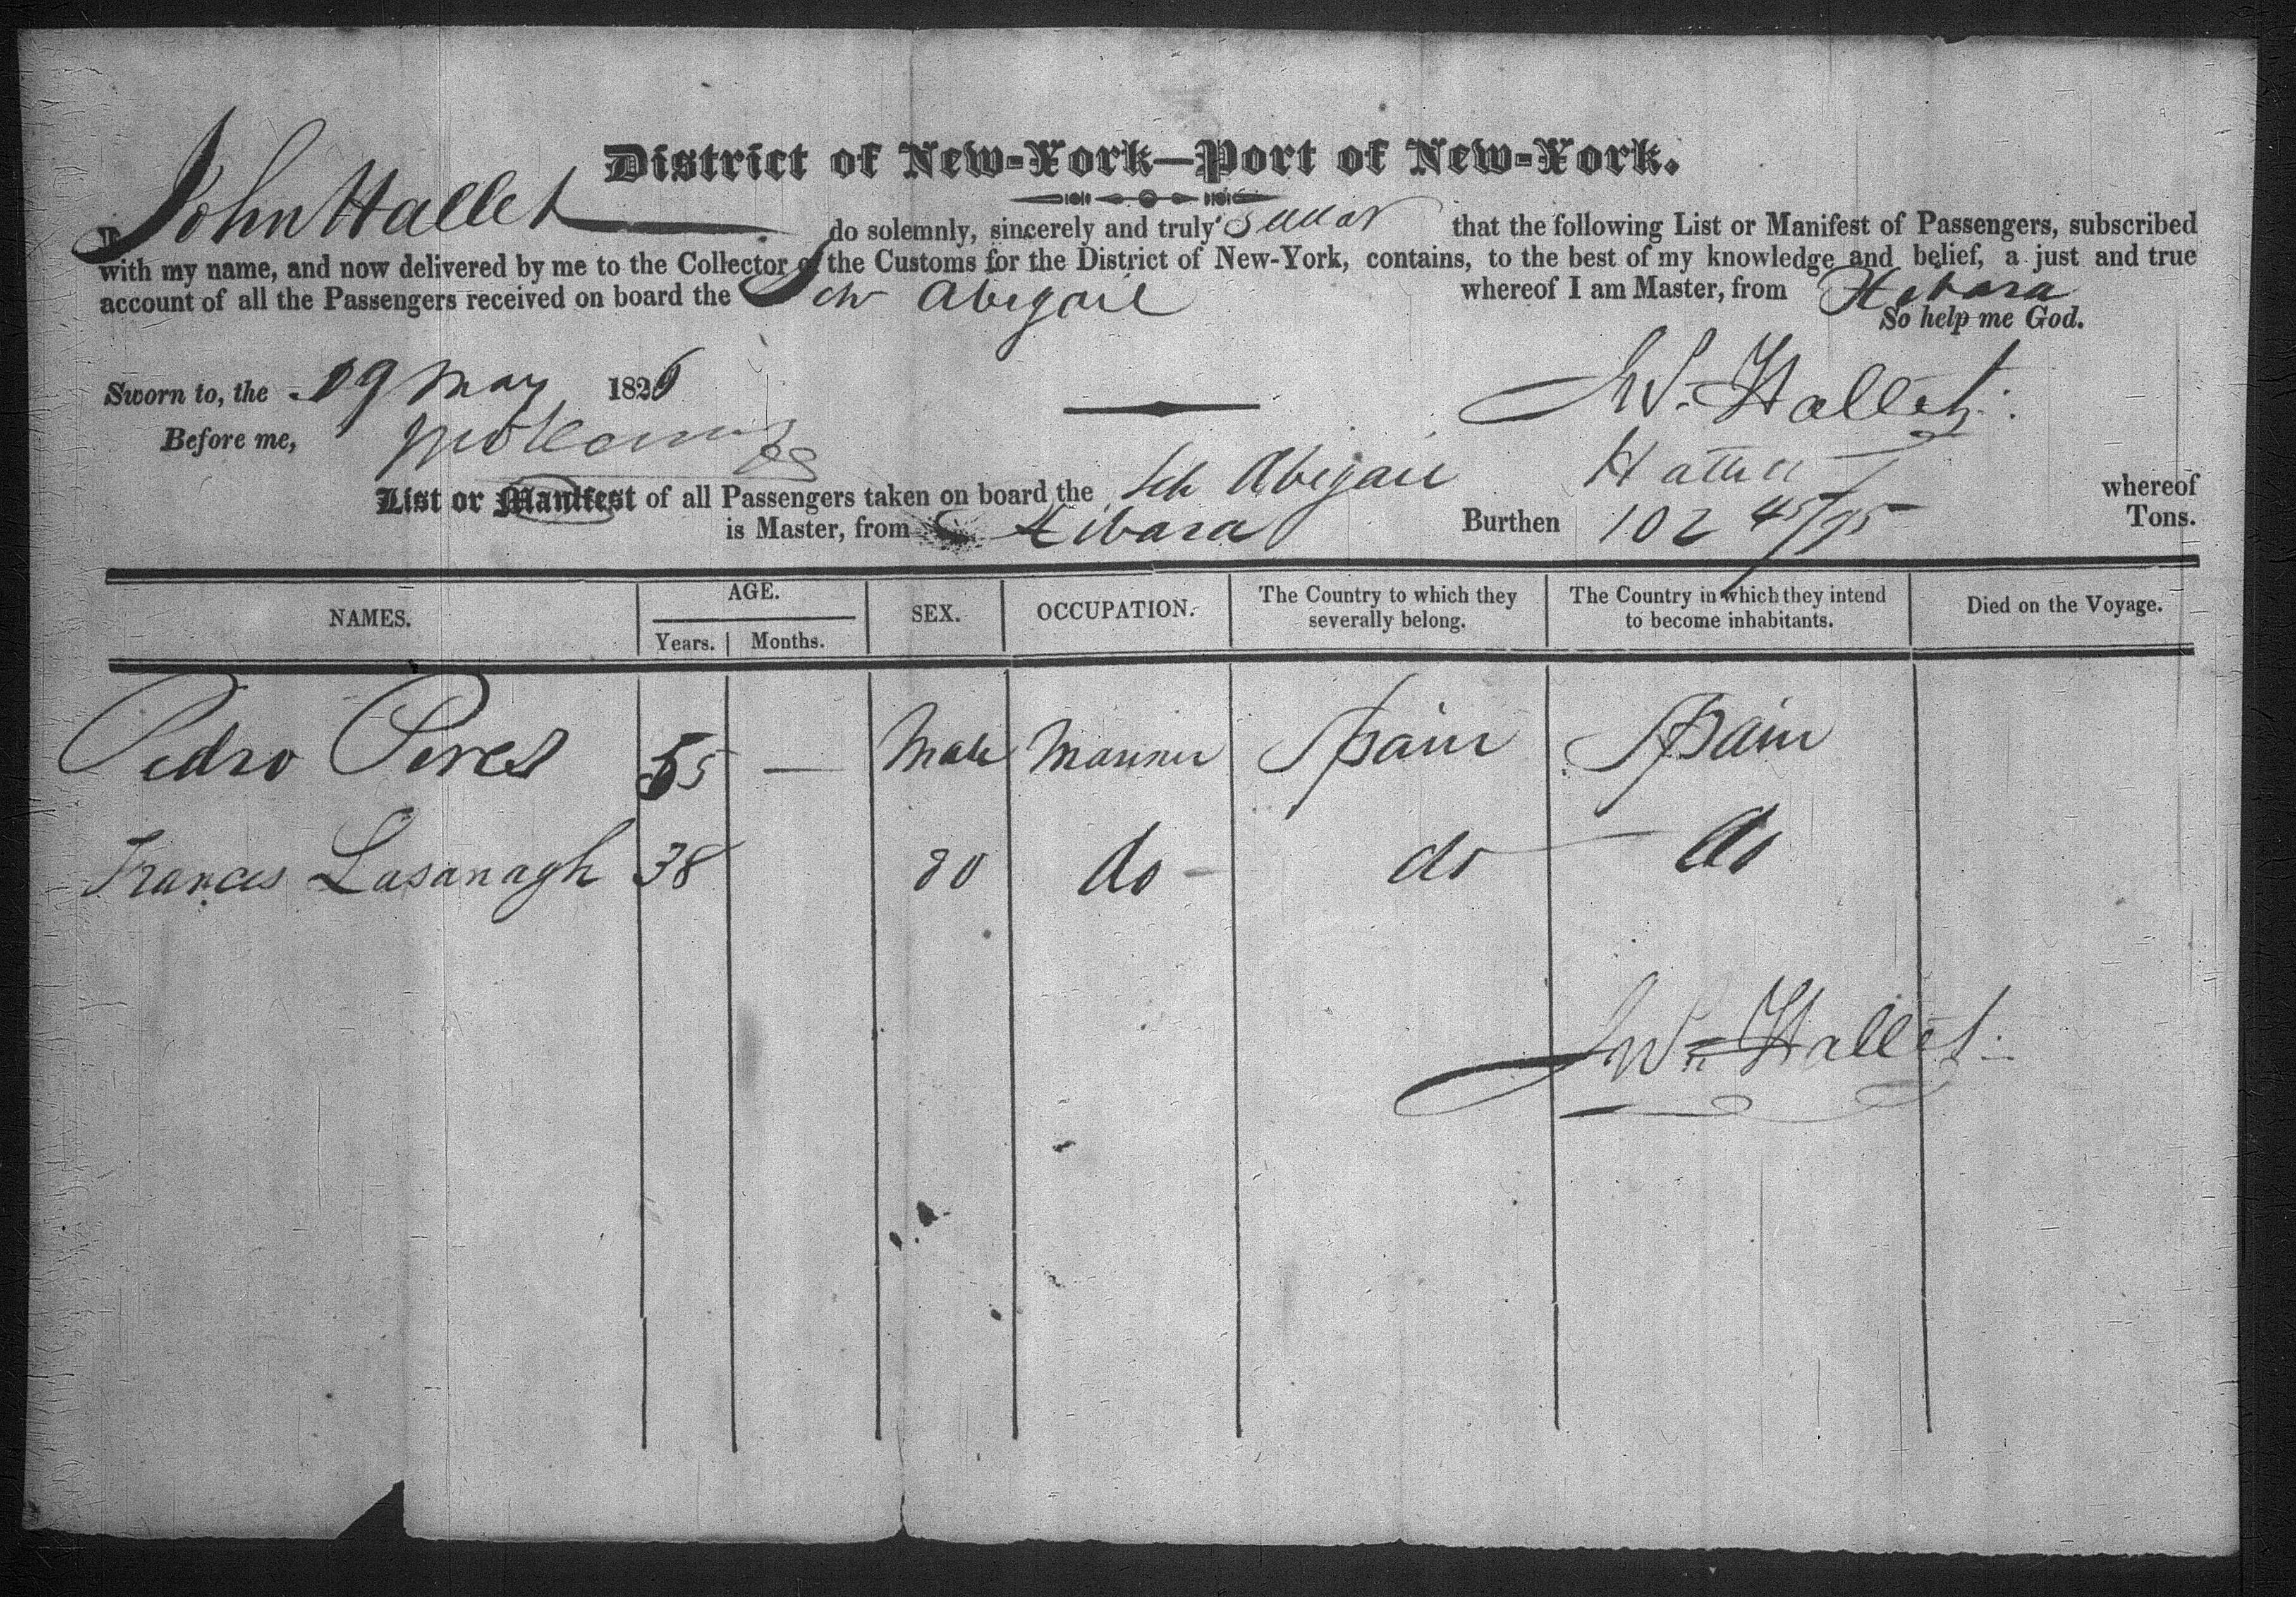 District of New-York—Port of New-York.
I, John Hallet do solemnly, sincerely and truly swear that the following List or Manifest of Passengers, subscribed
with my name, and now delivered by me to the Collector of the Customs for the District of New-York, contains, to the best of my knowledge and belief, a just and true
account of all the Passengers received on board the Sch Abigail whereof I am Master, from Hibara
So help me God.
Sworn to, the 19 May 1826
Jno. Hallet
Before me,
List or Manifest of all Passengers taken on board the Sch Abigail Hallet whereof
is Master, from Hibara Burthen 102 45/95 Tons.
NAMES. AGE. SEX. OCCUPATION. The Country to which they severally belong. The Country in which they intend to become inhabitants. Died on the Voyage.
Years. Months.
Pedro Peres 55 — Male Mariner Spain Spain
Frances Lasanagh 38 do do do do
Jno. Hallet